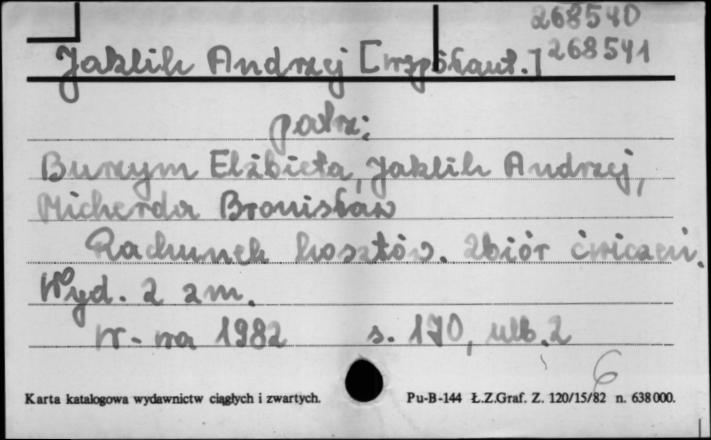 268540
Jaklik Andrzej [współaut.] 268541
patrz:
Burzym Elżbieta, Jaklik Andrzej,
Micherda Bronisław
Rachunek kosztów. Zbiór ćwiczeń.
Wyd. 2 zm.
W-wa 1982 s. 170, nlb. 2
6
Karta katalogowa wydawnictw ciągłych i zwartych. Pu-B-144 Ł.Z.Graf. Z. 120/15/82 n. 638000.